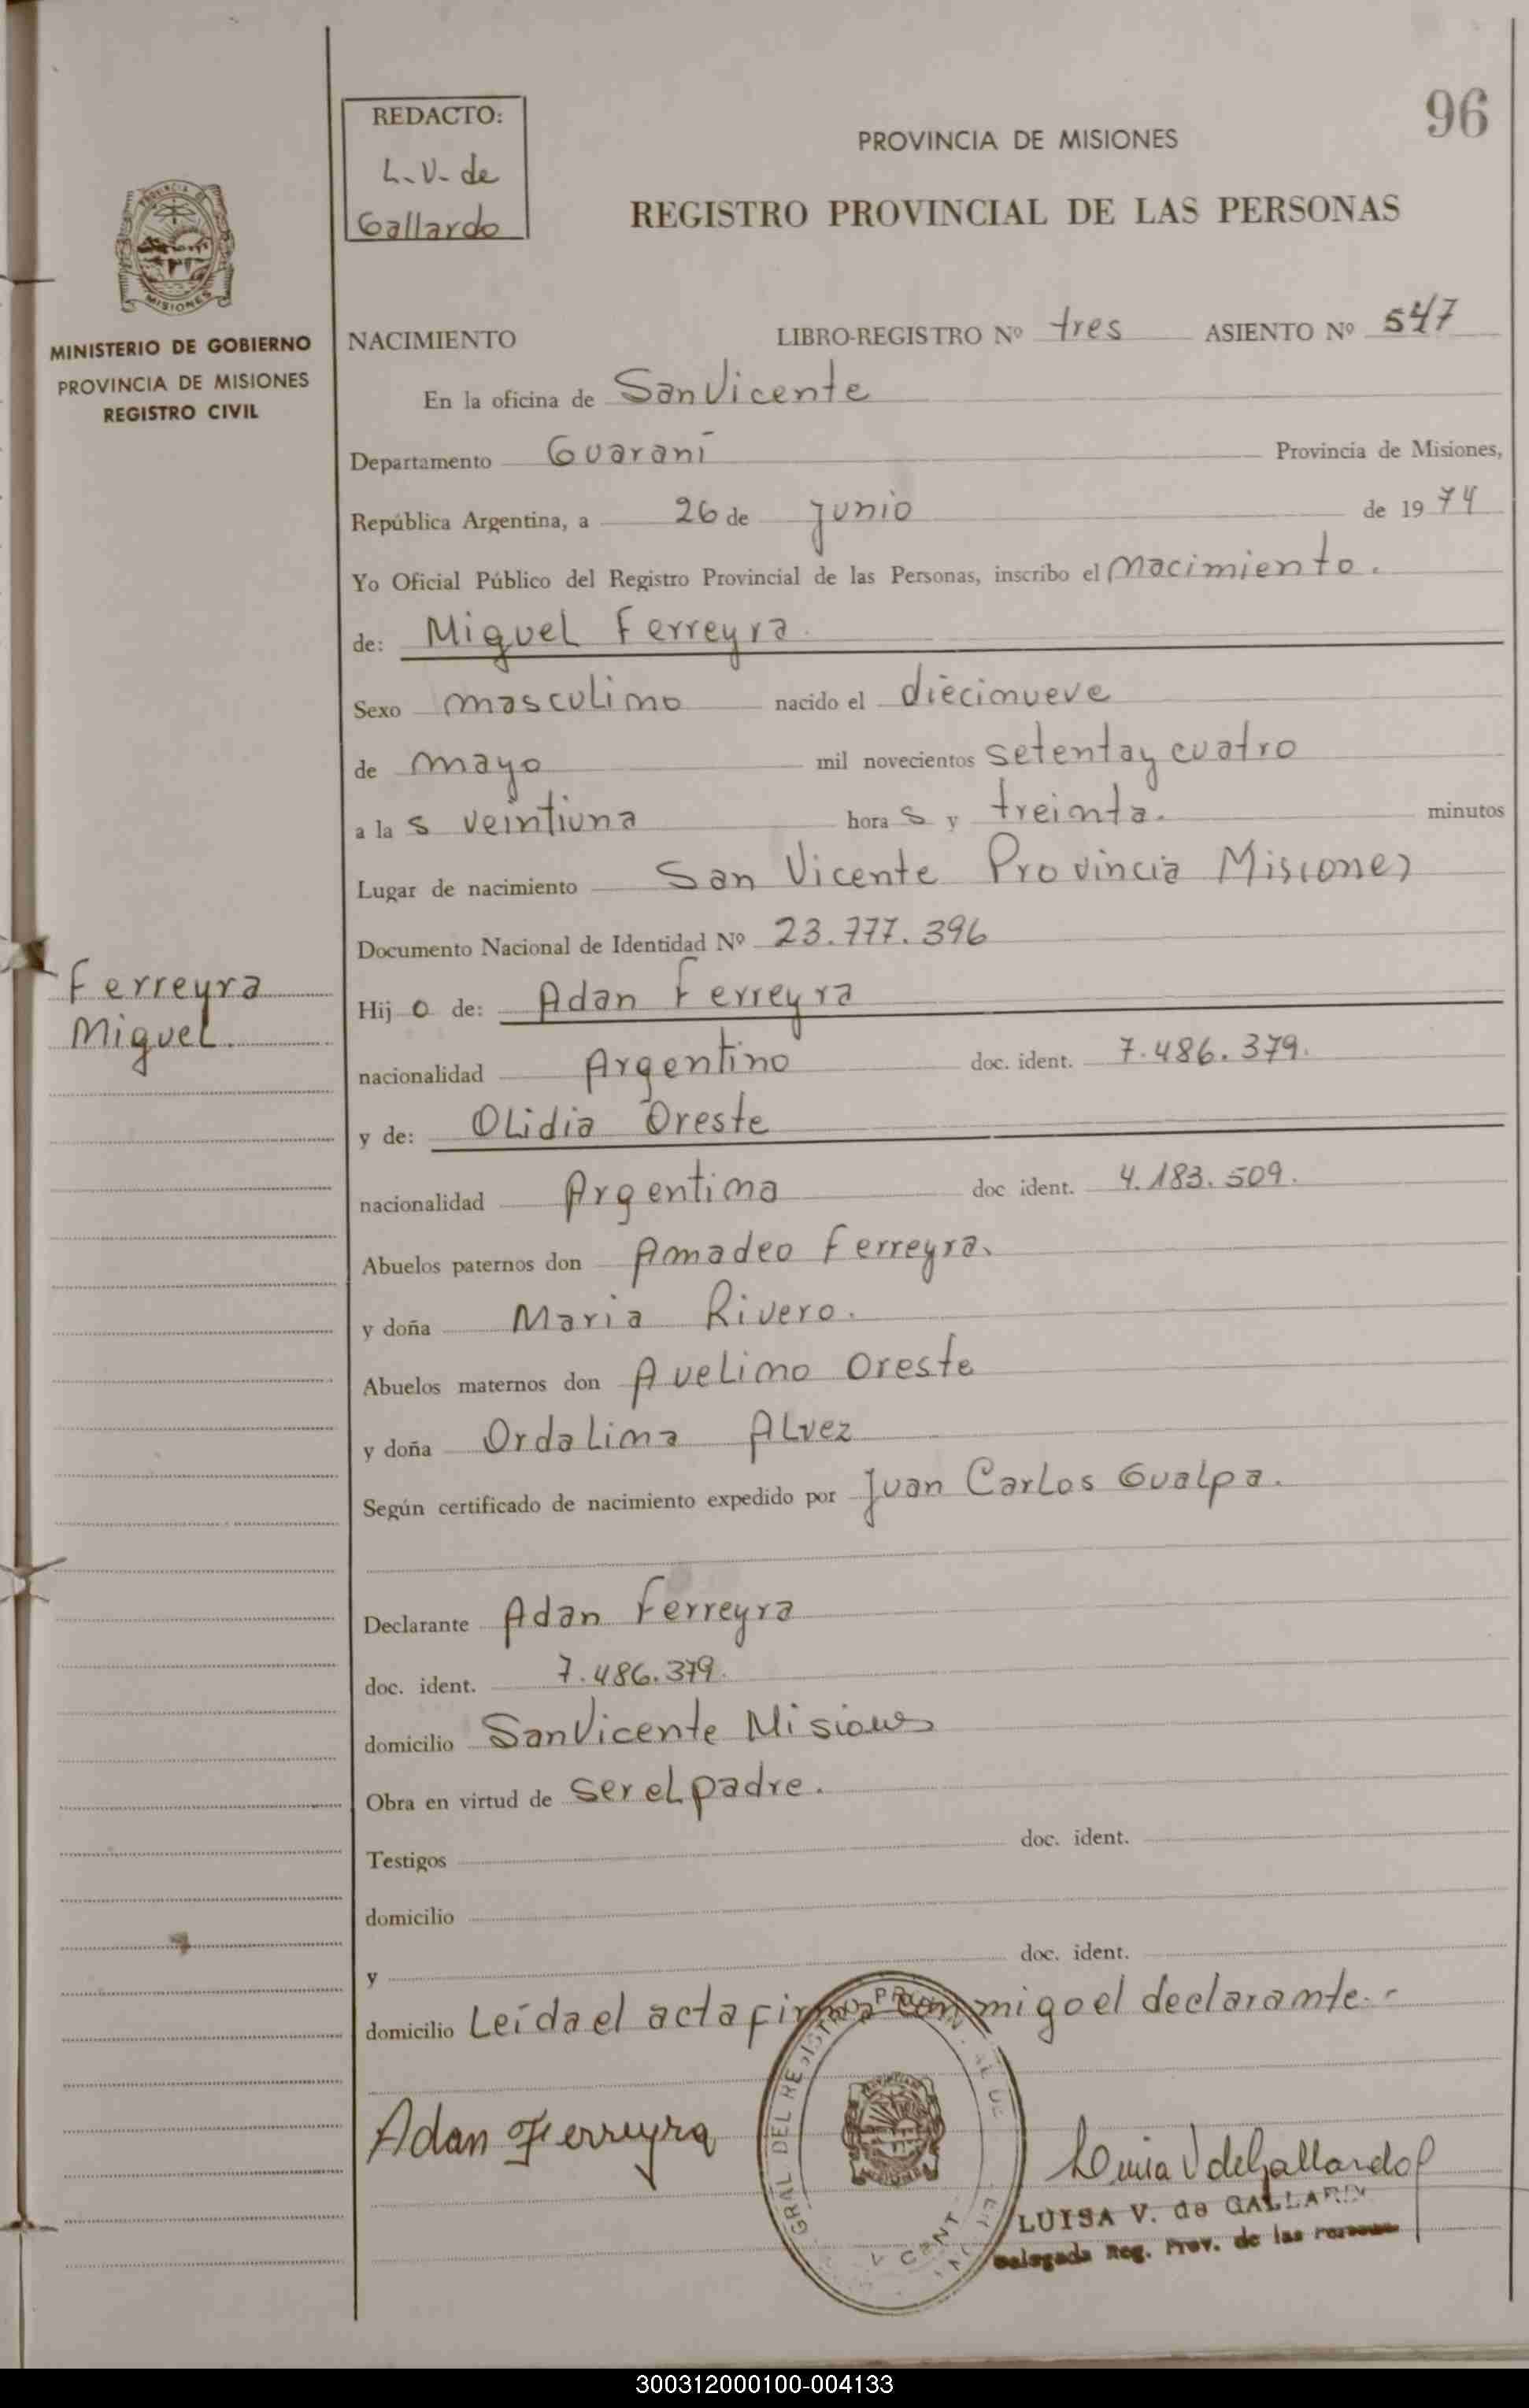 96
REDACTO:
L.V. de
Gallardo
PROVINCIA DE MISIONES
REGISTRO PROVINCIAL DE LAS PERSONAS
MISIONES
MINISTERIO DE GOBIERNO
PROVINCIA DE MISIONES
REGISTRO CIVIL
NACIMIENTO LIBRO-REGISTRO Nº tres ASIENTO Nº 547
En la oficina de San Vicente
Departamento Guaraní Provincia de Misiones,
República Argentina, a 26 de junio de 1974
Yo Oficial Público del Registro Provincial de las Personas, inscribo el Nacimiento.
de: Miguel Ferreyra.
Sexo masculino nacido el diecinueve
de mayo mil novecientos setenta y cuatro
a las veintiuna horas y treinta. minutos
Lugar de nacimiento San Vicente Provincia Misiones
Documento Nacional de Identidad Nº 23.777.396
Ferreyra
Miguel.
Hijo de: Adan Ferreyra
nacionalidad Argentino doc. ident. 7.486.379.
y de: Olidia Oreste
nacionalidad Argentina doc ident. 4.183.509.
Abuelos paternos don Amadeo Ferreyra.
y doña Maria Rivero.
Abuelos maternos don Avelino Oreste
y doña Ordalina Alvez
Según certificado de nacimiento expedido por Juan Carlos Gualpa.
Declarante Adan Ferreyra
doc. ident. 7.486.379.
domicilio San Vicente Misiones
Obra en virtud de ser el padre.
Testigos doc. ident.
domicilio
y doc. ident.
domicilio Leída el acta firma conmigo el declarante.-
Adan Ferreyra
GRAL. DEL REGISTRO
Luisa V de Gallardo
LUISA V. de GALLARDO
Delegada Reg. Prov. de las Personas
300312000100-004133